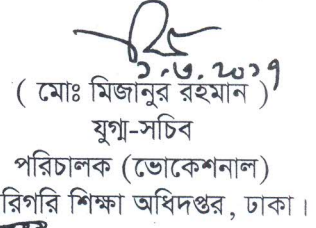 ১.৬.২০১৭
( মোঃ মিজানুর রহমান )
যুগ্ম-সচিব
পরিচালক (ভোকেশনাল)
রিগরি শিক্ষা অধিদপ্তর, ঢাকা।